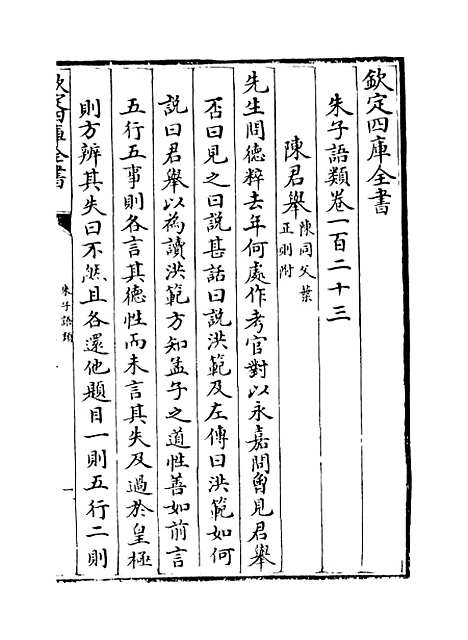 欽定四庫全書
朱子語類卷一百二十三
陳君舉陳同父葉
正則附
先生問德粹去年何處作考官對以永嘉問曾見君舉
否曰見之曰說甚話曰說洪範及左傳曰洪範如何
說曰君舉以為讀洪範方知孟子之道性善如前言
五行五事則各言其德性而未言其失及過於皇極
則方辨其失曰不然且各還他題目一則五行二則
欽定四庫全書
朱子語類
一